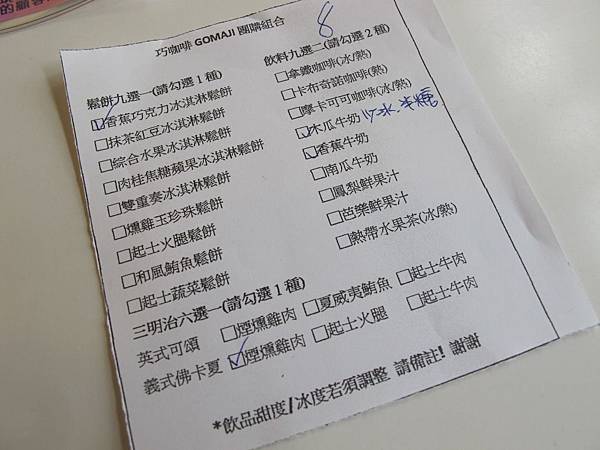 的顧客
8
巧咖啡 GOMAJI 團購組合
鬆餅九選一(請勾選 1 種)
☑香蕉巧克力冰淇淋鬆餅
□抹茶紅豆冰淇淋鬆餅
□綜合水果冰淇淋鬆餅
□肉桂焦糖蘋果冰淇淋鬆餅
□雙重奏冰淇淋鬆餅
□燻雞玉珍珠鬆餅
□起士火腿鬆餅
□和風鮪魚鬆餅
□起士蔬菜鬆餅
飲料九選二(請勾選 2 種)
□拿鐵咖啡(冰/熱)
□卡布奇諾咖啡(熱)
□摩卡可可咖啡(冰/熱)
☑木瓜牛奶 少冰.半糖
☑香蕉牛奶
□南瓜牛奶
□鳳梨鮮果汁
□芭樂鮮果汁
□熱帶水果茶(冰/熱)
三明治六選一(請勾選 1 種)
英式可頌 □煙燻雞肉 □夏威夷鮪魚 □起士牛肉
義式佛卡夏 ☑煙燻雞肉 □起士火腿 □起士牛肉
*飲品甜度/冰度若須調整 請備註! 謝謝